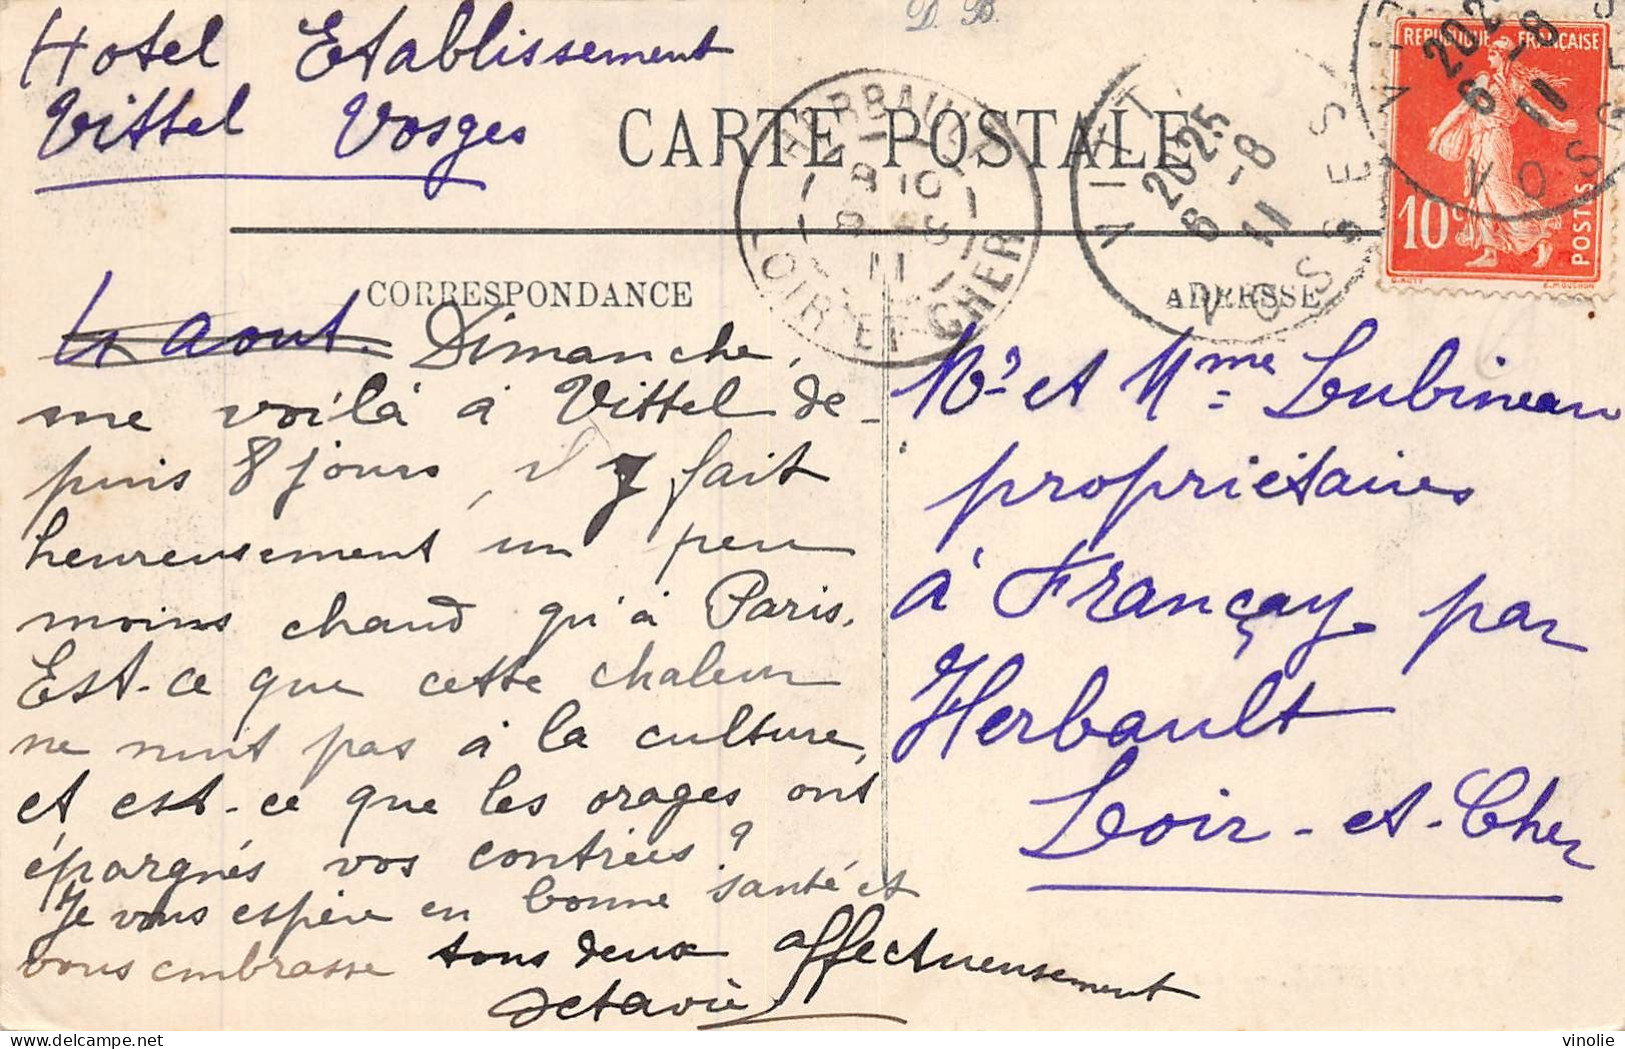 D. B.
Hotel Etablissement
Vittel Vosges
CARTE POSTALE
HERBAULT
LOIR-ET-CHER
VITTEL
VOSGES
2025
6 -8
11
REPUBLIQUE FRANÇAISE
10c
POSTES
CORRESPONDANCE
ADRESSE
4 Aout. Dimanche,
me voilà à Vittel de-
puis 8 jours, il y fait
heureusement un peu
moins chaud qu'à Paris.
Est-ce que cette chaleur
ne nuit pas à la culture,
et est-ce que les orages ont
épargnés vos contrées?
Je vous espère en bonne santé et
vous embrasse tous deux affectueusement
Octavie
Mr et Mme Lubineau
propriétaires
à Françay par
Herbault
Loir-et-Cher
vinolie